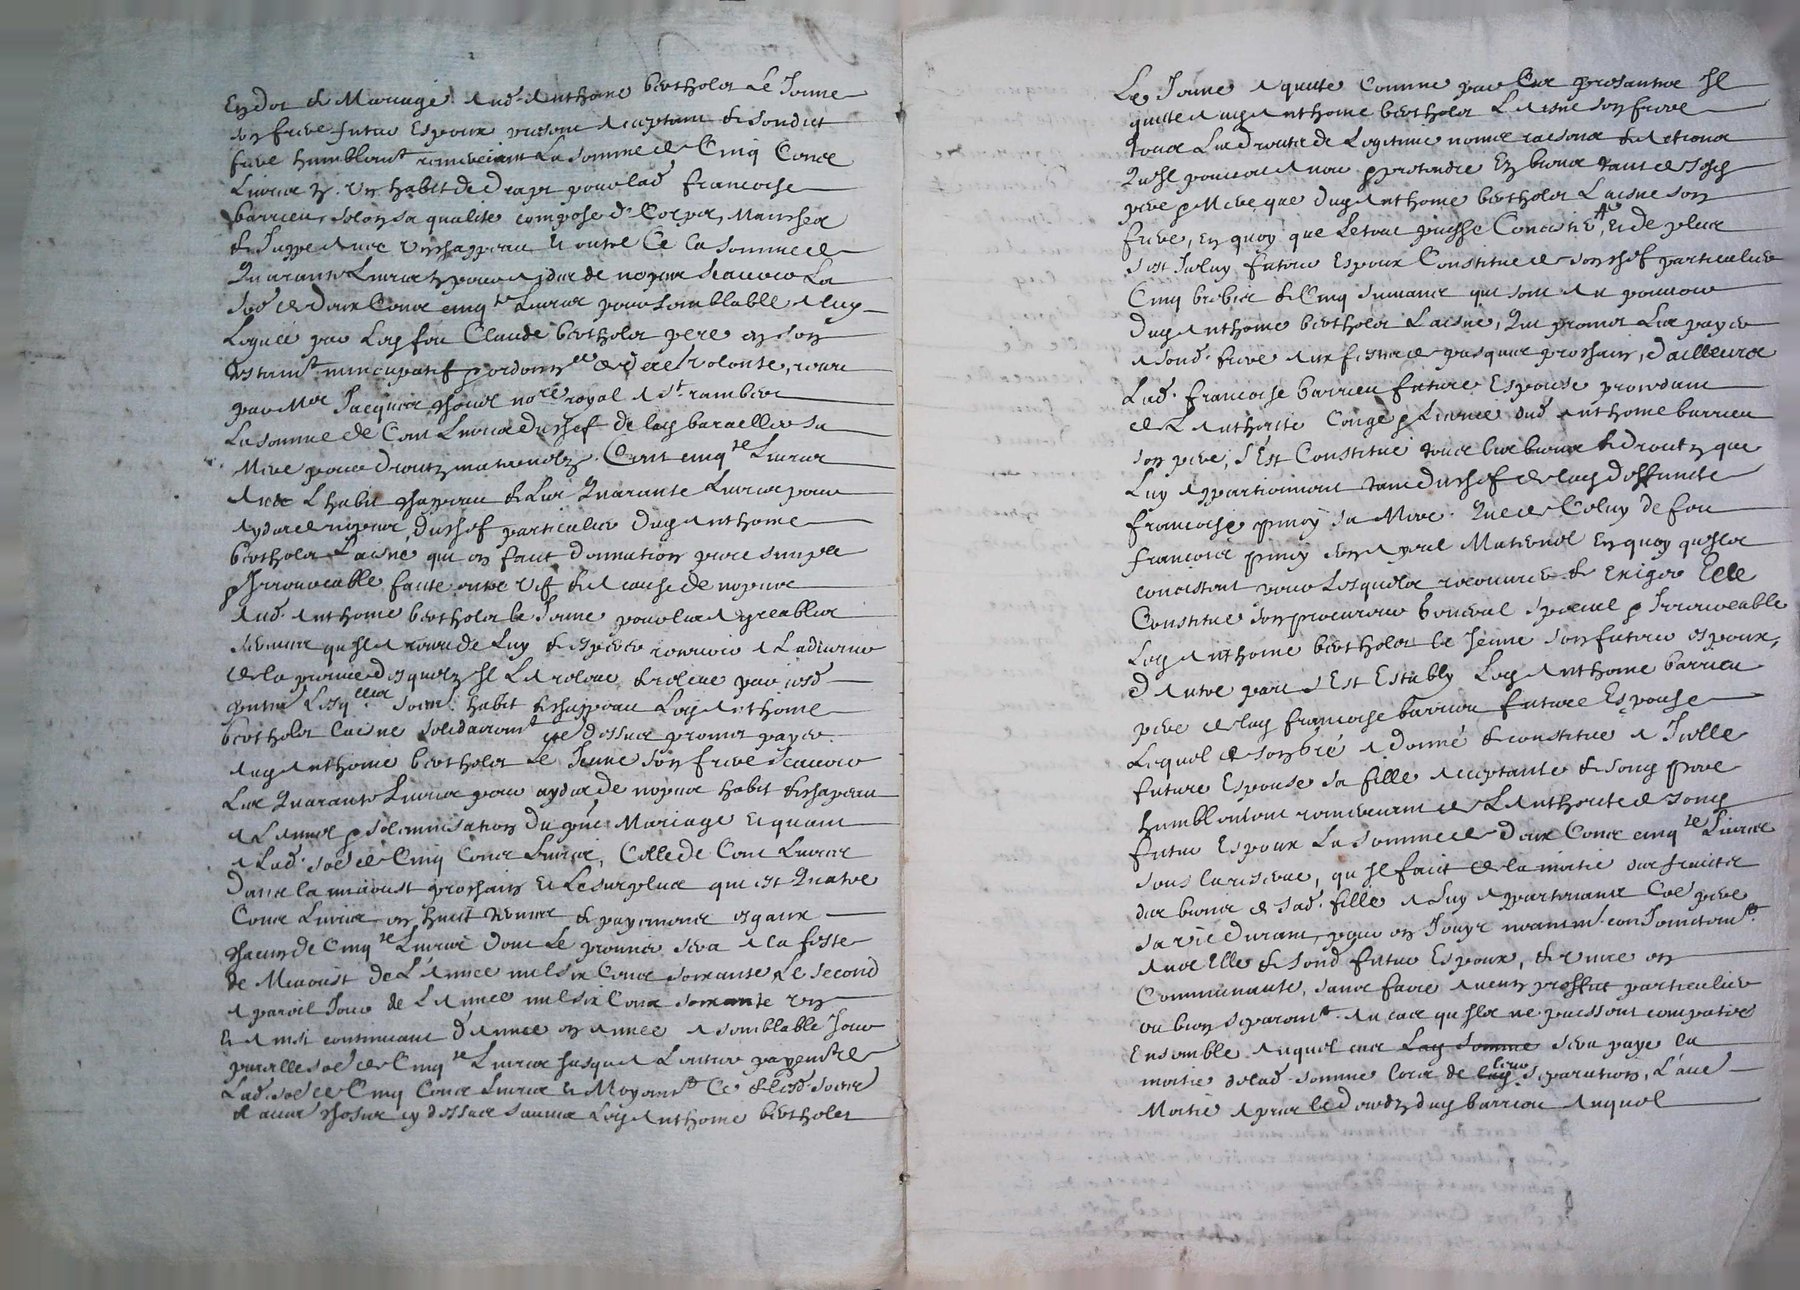 En dot & Mariage Aud. Anthoine bertholet Le Jeune
son frere futur Espoux presant Aceptant & sondict
frere humblemt remerciant La somme de Cinq Centz
Livres & Un habit de drapt pour lad francoise
barrieu selon sa qualite compose d Corpz, Manches
& Juppe Avec Un chappeau Et outre Ce la somme de
Quarante Livres pour aydes de nopces scavoir La
soe de deux Centz cinqte Livres pour semblable A luy
Legueé par Led feu Claude bertholet pere en son
testamt nuncupatif & ordonnce de dre volonte, receu
par Me Jacques nore royal A st rambert
La somme de Cent Livres du chef de lad baraillier sa
Mere pour droitz maternelz. Cent cinqte Livres
Avec Lhabit chapeau & Les Quarante Livres pour
Aydes de nopces, du chef particulier dud Anthoine
bertholet Laisne qui en faict donnation pure simple
& Irrevocable faicte entre vif & A cause de nopces
Aud Anthoine bertholet le Jeune pour les Agreables
services quil A receu de Luy & espere recevoir A Ladvenir
de la preuve desquelz Il La releve & releve par cesd
pntes Lesqlles soes habit & chappeau Led Anthoine
bertholet laisne solidairemt que dessus promet payer
Aud Anthoine bertholet Le Jeune son frere scavoir
Les Quarante Livres pour aydes de nopces habit & chapeau
A Lannel & solemnisation du pnt Mariage Et quant
A Lad. soe de Cinq Centz Livres, Celle de Cent Livres
dans la miaoust prochain Et Le surplus qui est Quatre
Centz Livres en huit termes & payementz esgaux
chacun de Cinqte Livres dont Le premier sera A la feste
de Miaoust de L'Annee mil six Centz soixante Le second
A pareil Jour de LAnnee mil six Centz soixante Un
Et Ainsi continuant d'Annee en Annee A semblable Jour
pareille soe de Cinqte Livres Jusqu A Lentier payemt de
Lad. soe de Cinq Centz Livres Et Moyent Ce & lesd. soes
& autres choses cy dessus Led Anthoine bertholet
Le Jeune A quitte Comme par Ces presantes Il
quitte Aud Anthoine bertholet LAisne son frere
tous Les droitz de Legitime noms raisons & Actions
Quil pourroit Avoir & pretendre Es biens tant de Sesd
pere & Mere que dud Anthoine bertholet Laisne son
frere, En quoy que Le tout puisse Concister, Et de plus
s'est Iceluy futur Espoux Constitue de son chef particulier
Cinq brebis & Cinq qui sont Au pouvoir
dud Anthoine bertholet Laisne, Qui promet Les payer
A sond. frere Aux festes de pasques prochain, d'ailleurs
Lad. francoise barrieu future Espouse procedant
de LAuthorite Congé & Licence dud Anthoine barrieu
son pere, s'Est Constitué tous ses biens & droitz que
Luy Appartiennent tant du chef de lad deffuncte
francoise pinoy sa Mere. Que de Celuy de feu
francois pinoy son Ayeul Maternel En quoy quilz
concistent pour Lesquelz recouvrer & Exiger Elle
Constitue son procureur General special & Irrevocable
Led Anthoine bertholet le Jeune son futur espoux,
d'Autre part s'Est Estably Led Anthoine barrieu
pere de lad francoise barrieu future Espouse
Lequel de son gré A donné & constitue A Icelle
future Espouse sa fille Acceptante & sond pere
humblement remerciant de LAuthorite de sond
futur Espoux La somme de deux Centz cinqte Livres
sous la reserve, qu Il faict de la moitie des fruictz
des biens de sad. fille A luy Appartenants Coe pere
sa vie durant, pour en Jouyr neantmt conJoinctemt
Avec Elle & sond futur Espoux, & vivre en
Communaute, sans faire Aucun proffict particulier
ou bien separemt. Au cas quilz ne puissent compatir
Ensemble Auquel cas Lad somme sera paye la
moitie delad. somme lors de leur separation, L'autre
Moitie Apres le decedz dud barrieu Auquel